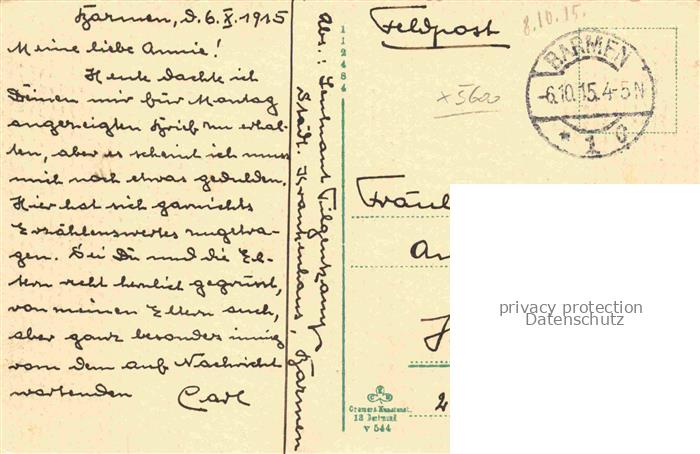 Barmen, d. 6. X. 1915
Meine liebe Annie!
Heute dachte ich
Deinen mir für Montag
angezeigten Brief zu erhal-
ten, aber es scheint ich muss
mich noch etwas gedulden.
Hier hat sich garnichts
Erzählenswertes zugetra-
gen. Sei Du und die El-
tern recht herzlich gegrüsst,
von meinen Eltern auch,
aber ganz besonders innig
von dem auf Nachricht
wartenden Carl
Abs.: Leutnant Tilgenkamp
Städt. Krankenhaus, Barmen
112484
Cramers Kunstanst.
Dortmund
V 544
Feldpost
8.10.15.
x 5600
BARMEN
-6.10.15.4-5N
* 1 c
Fräul
An
2
privacy protection
Datenschutz